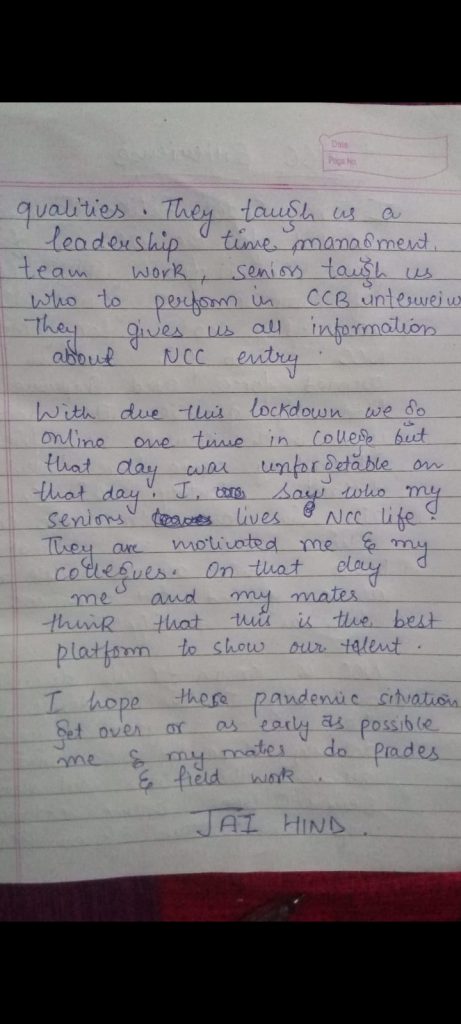 Date
Page No
qualities. They taugh us a
leadership time managment,
team work, senior taugh us
who to perform in CCB interweiw
They gives us all information
about NCC entry.
With due this lockdown we go
online one time in college but
that day was unforgetable on
that day. I, say who my
seniors lives NCC life.
They are motivated me & my
collegues. On that day
me and my mates
think that this is the best
platform to show our talent.
I hope these pandemic situation
get over or as early as possible
me & my mates do prades
& field work.
JAI HIND.